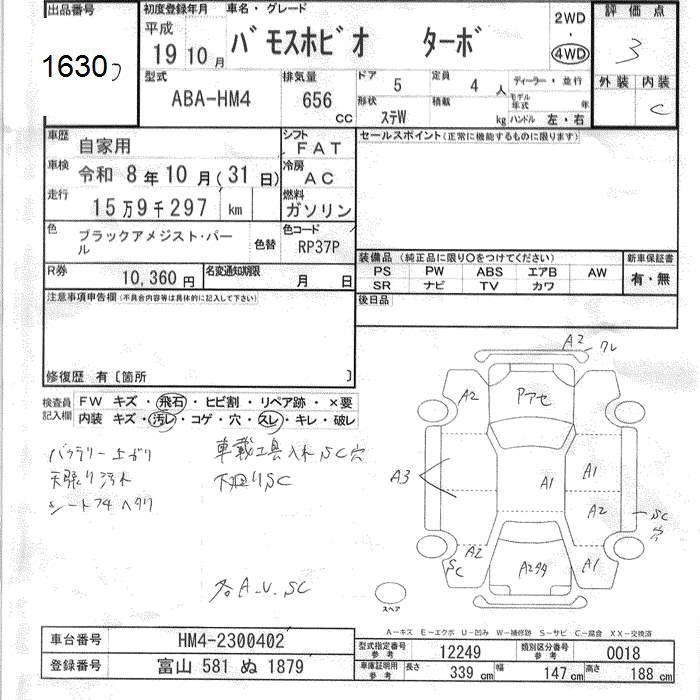 出品番号
16307
初度登録年月
平成
19 10 月
車名・グレード
バモスホビオ ターボ
2WD
・
4WD
評価点
3
外装 内装
C
型式
ABA-HM4
排気量
656
cc
ドア 5
定員 4 人
ディーラー・並行
形状 ステW
積載 kg
モデル年式 年
ハンドル 左・右
車歴 自家用
シフト FAT
セールスポイント(正常に機能するものに限ります)
車検 令和 8年10月(31日)
冷房 AC
走行 15万9千297 km
燃料 ガソリン
色 ブラックアメジスト・パール
色替
色コード RP37P
R券 10,360円
名変通知期限 月 日
装備品(純正品に限り○をつけてください)
PS PW ABS エアB AW
SR ナビ TV カワ
新車保証書
有・無
後日品
注意事項申告欄(不具合内容等は具体的に記入して下さい)
修復歴 有〔箇所 〕
検査員記入欄
FW キズ・飛石・ヒビ割・リペア跡・×要
内装 キズ・汚レ・コゲ・穴・スレ・キレ・破レ
バッテリー上がり
天張り汚れ
シートフチヘタリ
車載工具入れSC穴
下廻りSC
各A.U.SC
A2 ワレ
A2
Pアセ
A3
A1
A1
A2
SC穴
A2
SC
A1
スペア
A-キズ E-エクボ U-凹み W-補修跡 S-サビ C-腐食 XX-交換済
車台番号 HM4-2300402
登録番号 富山 581 ぬ 1879
型式指定番号 参考 12249
類別区分番号 参考 0018
車庫証明用 参考 長さ 339 cm 幅 147 cm 高さ 188 cm